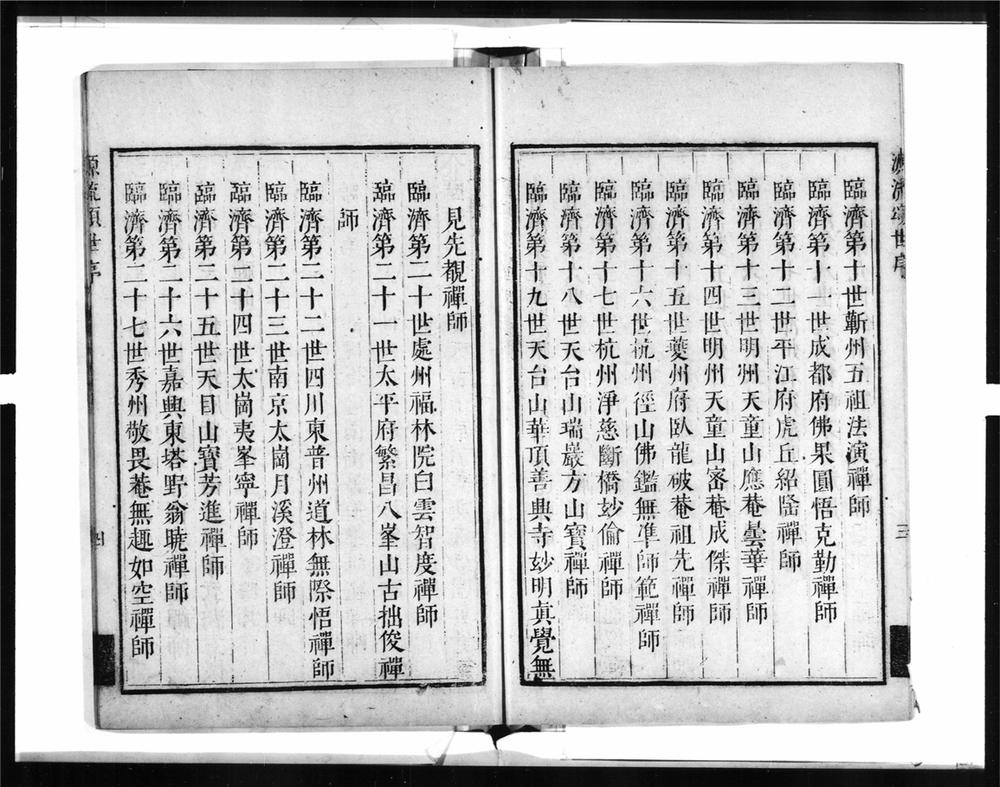 臨濟第十世蘄州五祖法演禪師
臨濟第十一世成都府佛果圓悟克勤禪師
臨濟第十二世平江府虎丘紹隆禪師
臨濟第十三世明州天童山應菴曇華禪師
臨濟第十四世明州天童山密菴成傑禪師
臨濟第十五世夔州府臥龍破菴祖先禪師
臨濟第十六世杭州徑山佛鑑無準師範禪師
臨濟第十七世杭州淨慈斷橋妙倫禪師
臨濟第十八世天台山瑞巖方山寶禪師
臨濟第十九世天台山華頂善興寺妙明真覺無
見先覩禪師
臨濟第二十世處州福林院白雲智度禪師
臨濟第二十一世太平府繁昌八峯山古拙俊禪
師
臨濟第二十二世四川東普州道林無際悟禪師
臨濟第二十三世南京太崗月溪澄禪師
臨濟第二十四世太崗夷峯寧禪師
臨濟第二十五世天目山寶芳進禪師
臨濟第二十六世嘉興東塔野翁曉禪師
臨濟第二十七世秀州敬畏菴無趣如空禪師
源流頌世序
四
三